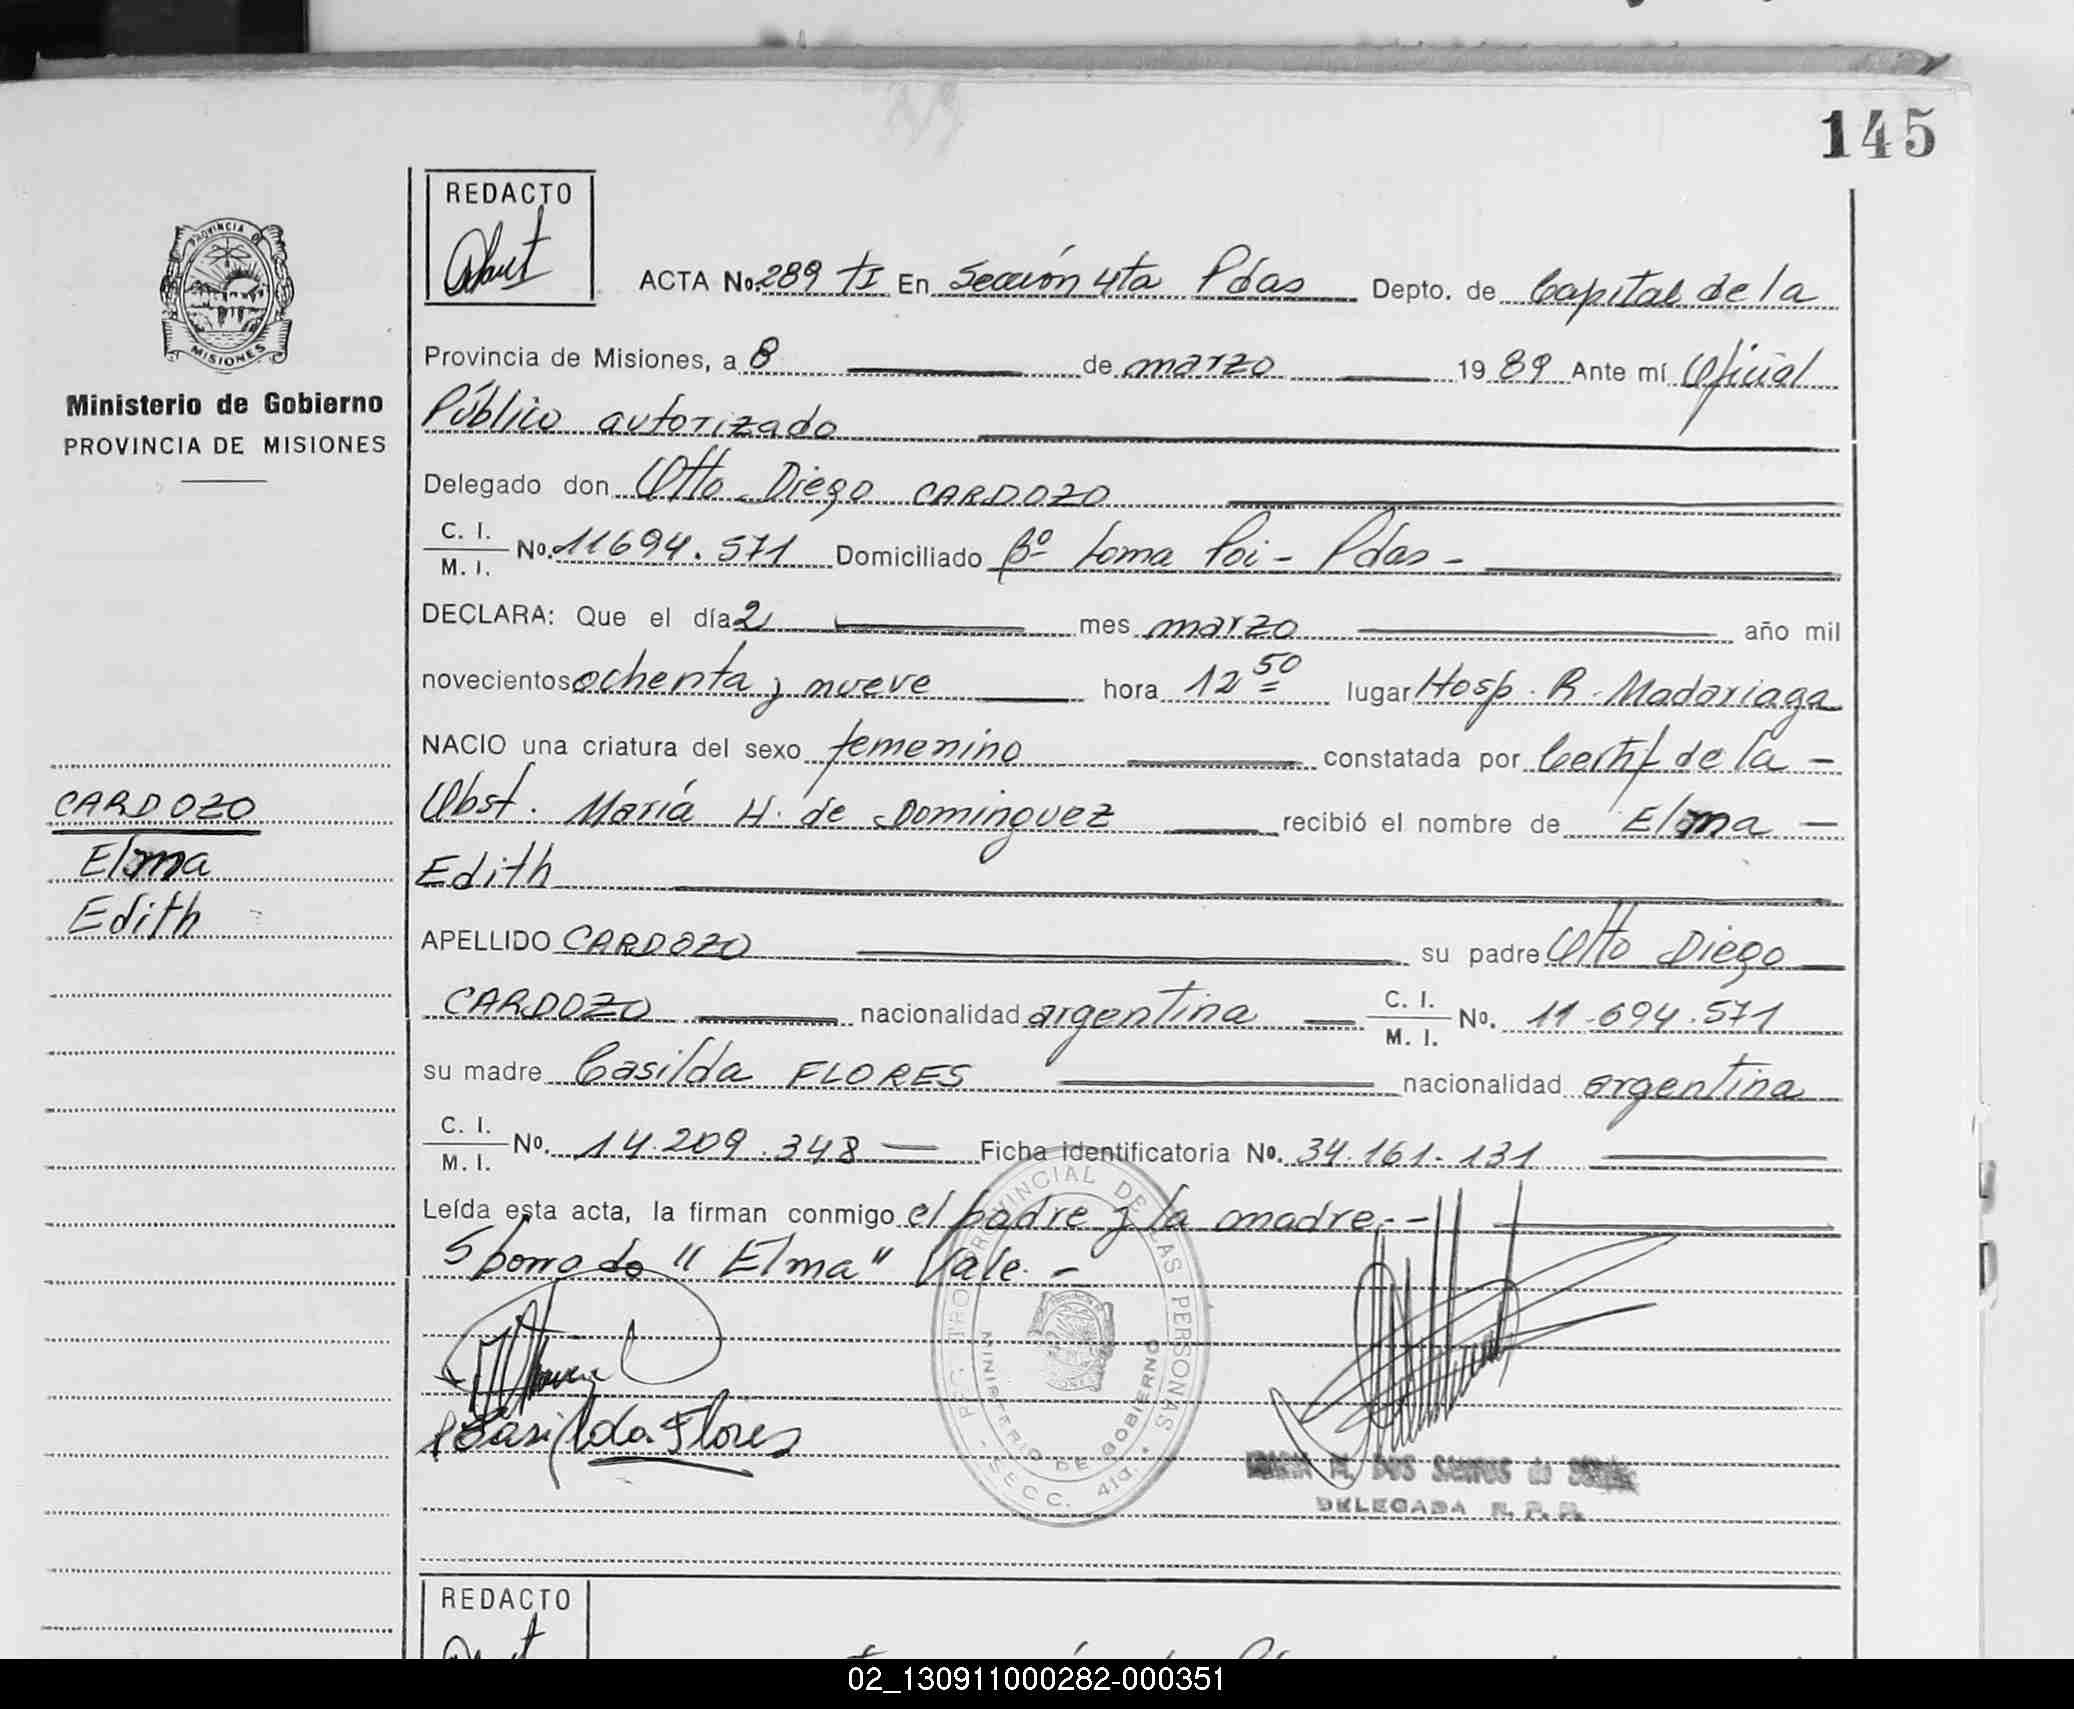 145
REDACTO
PROVINCIA DE
MISIONES
Ministerio de Gobierno
PROVINCIA DE MISIONES
ACTA No. 289 tI En Sección 4ta Pdas Depto. de Capital de la
Provincia de Misiones, a 8 de marzo 19 89 Ante mí Oficial
Público autorizado
Delegado don Otto Diego CARDOZO
C. I.
M. I. No. 11694.571 Domiciliado Bº Loma Poi - Pdas -
DECLARA: Que el día 2 mes marzo año mil
novecientos ochenta y nueve hora 12 50 lugar Hosp. R. Madariaga
NACIO una criatura del sexo femenino constatada por Certif de la -
Obst. María H. de Dominguez recibió el nombre de Elma -
Edith
CARDOZO
Elma
Edith
APELLIDO CARDOZO su padre Otto Diego
CARDOZO nacionalidad argentina C. I.
M. I. No. 11.694.571
su madre Casilda FLORES nacionalidad argentina
C. I.
M. I. No. 14.209.348 Ficha identificatoria No. 34.161.131
Leída esta acta, la firman conmigo el padre y la madre.-
S/borrado "Elma" Vale. -
Casilda Flores
PROVINCIAL DE LAS PERSONAS
MINISTERIO DE GOBIERNO
SECC. 4ta.
M. DOS SANTOS de
DELEGADA R. P. P.
REDACTO
02_130911000282-000351